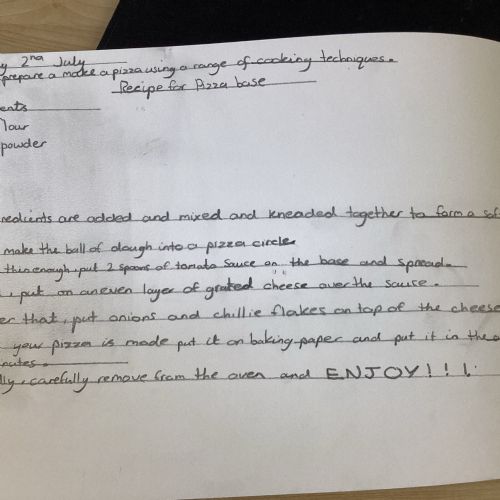 y 2nd July
prepare a make a pizza using a range of cooking techniques.
Recipe for Pizza base
ents
lour
powder
redients are added and mixed and kneaded together to form a sof
make the ball of dough into a pizza circle
thin enough, put 2 spoons of tomato sauce on the base and spread.
, put on an even layer of grated cheese over the sauce.
er that, put onions and chillie flakes on top of the cheese
your pizza is made put it on baking paper and put it in the o
nutes.
lly, carefully remove from the oven and ENJOY!!!